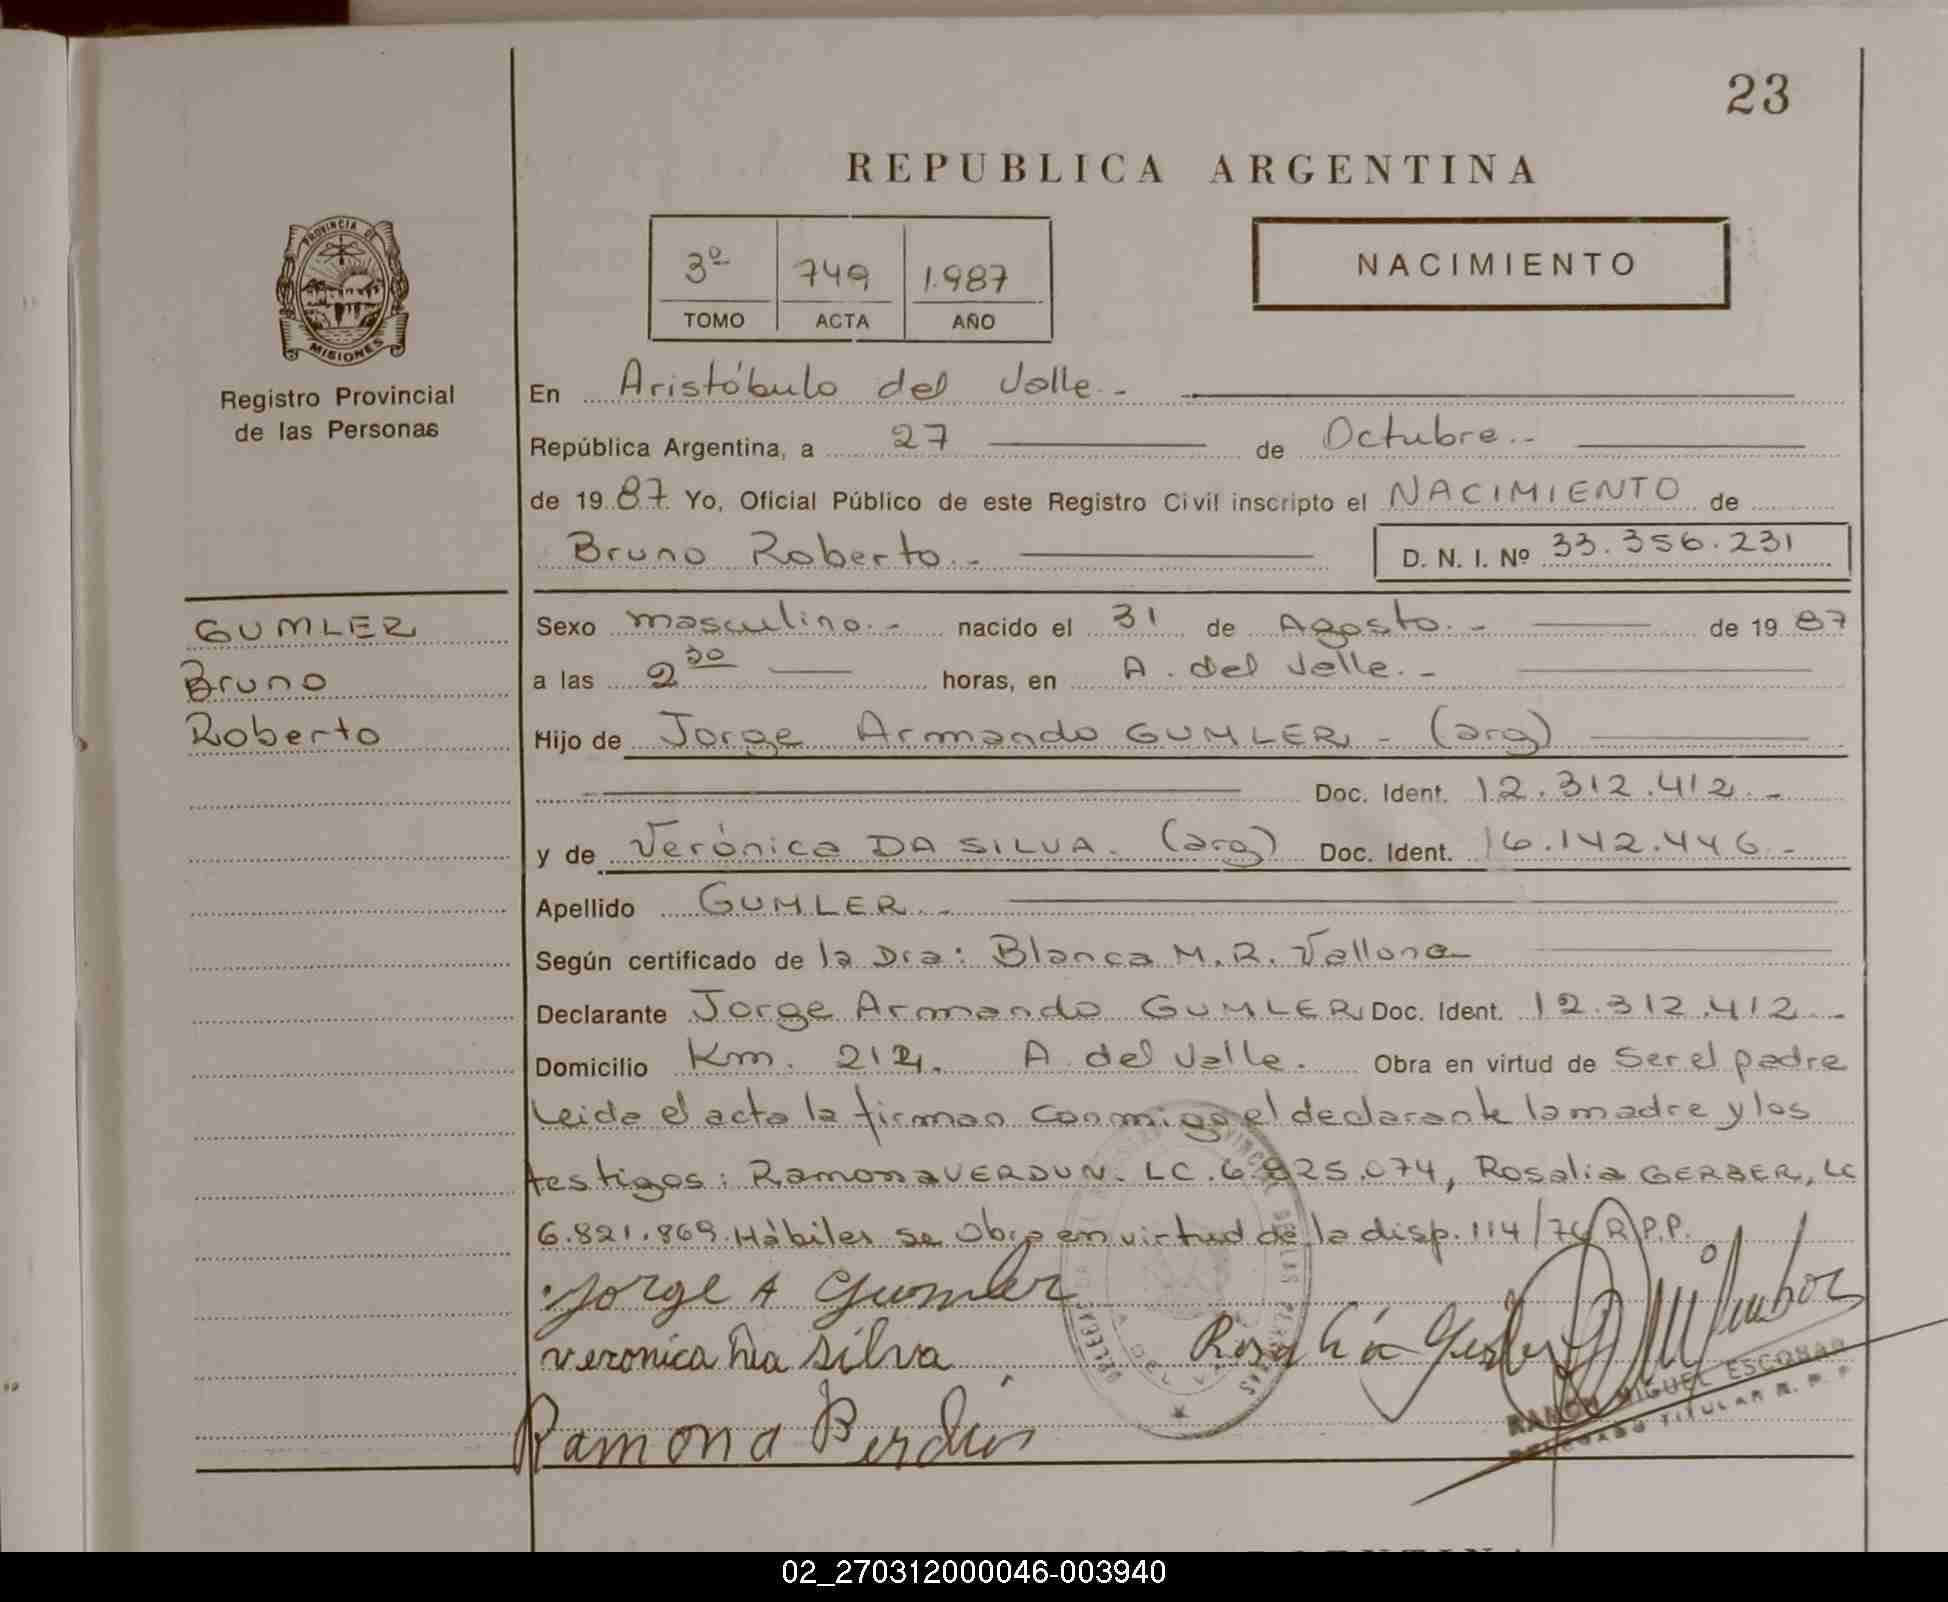 23
REPUBLICA ARGENTINA
PROVINCIA DE
MISIONES
Registro Provincial
de las Personas
3º 749 1.987
TOMO ACTA AÑO
NACIMIENTO
En Aristóbulo del Valle.-
República Argentina, a 27 de Octubre.-
de 19 87 Yo, Oficial Público de este Registro Civil inscripto el NACIMIENTO de
Bruno Roberto.- D. N. I. Nº 33.356.231
GUMLER
Bruno
Roberto
Sexo masculino.- nacido el 31 de Agosto.- de 19 87
a las 2 30 horas, en A. del Valle.-
Hijo de Jorge Armando GUMLER - (arg)
Doc. Ident. 12.312.412.-
y de Verónica DA SILVA. (arg) Doc. Ident. 16.142.446.-
Apellido GUMLER.-
Según certificado de la Dra: Blanca M. R. Vallone
Declarante Jorge Armando GUMLER Doc. Ident. 12.312.412.-
Domicilio Km. 212. A. del Valle. Obra en virtud de Ser el padre
Leida el acta la firman conmigo el declarante la madre y los
testigos: Ramona VERDUN. LC. 6.825.074, Rosalia GERBER, LC
6.821.869. Hábiles se Obra en virtud de la disp. 114/76 R.P.P.
Jorge A Gumler
veronica Da silva
Rosalía Gerber
Ramona Berdún
RAMON MIGUEL ESCOBAR
DELEGADO TITULAR R. P. P.
02_270312000046-003940